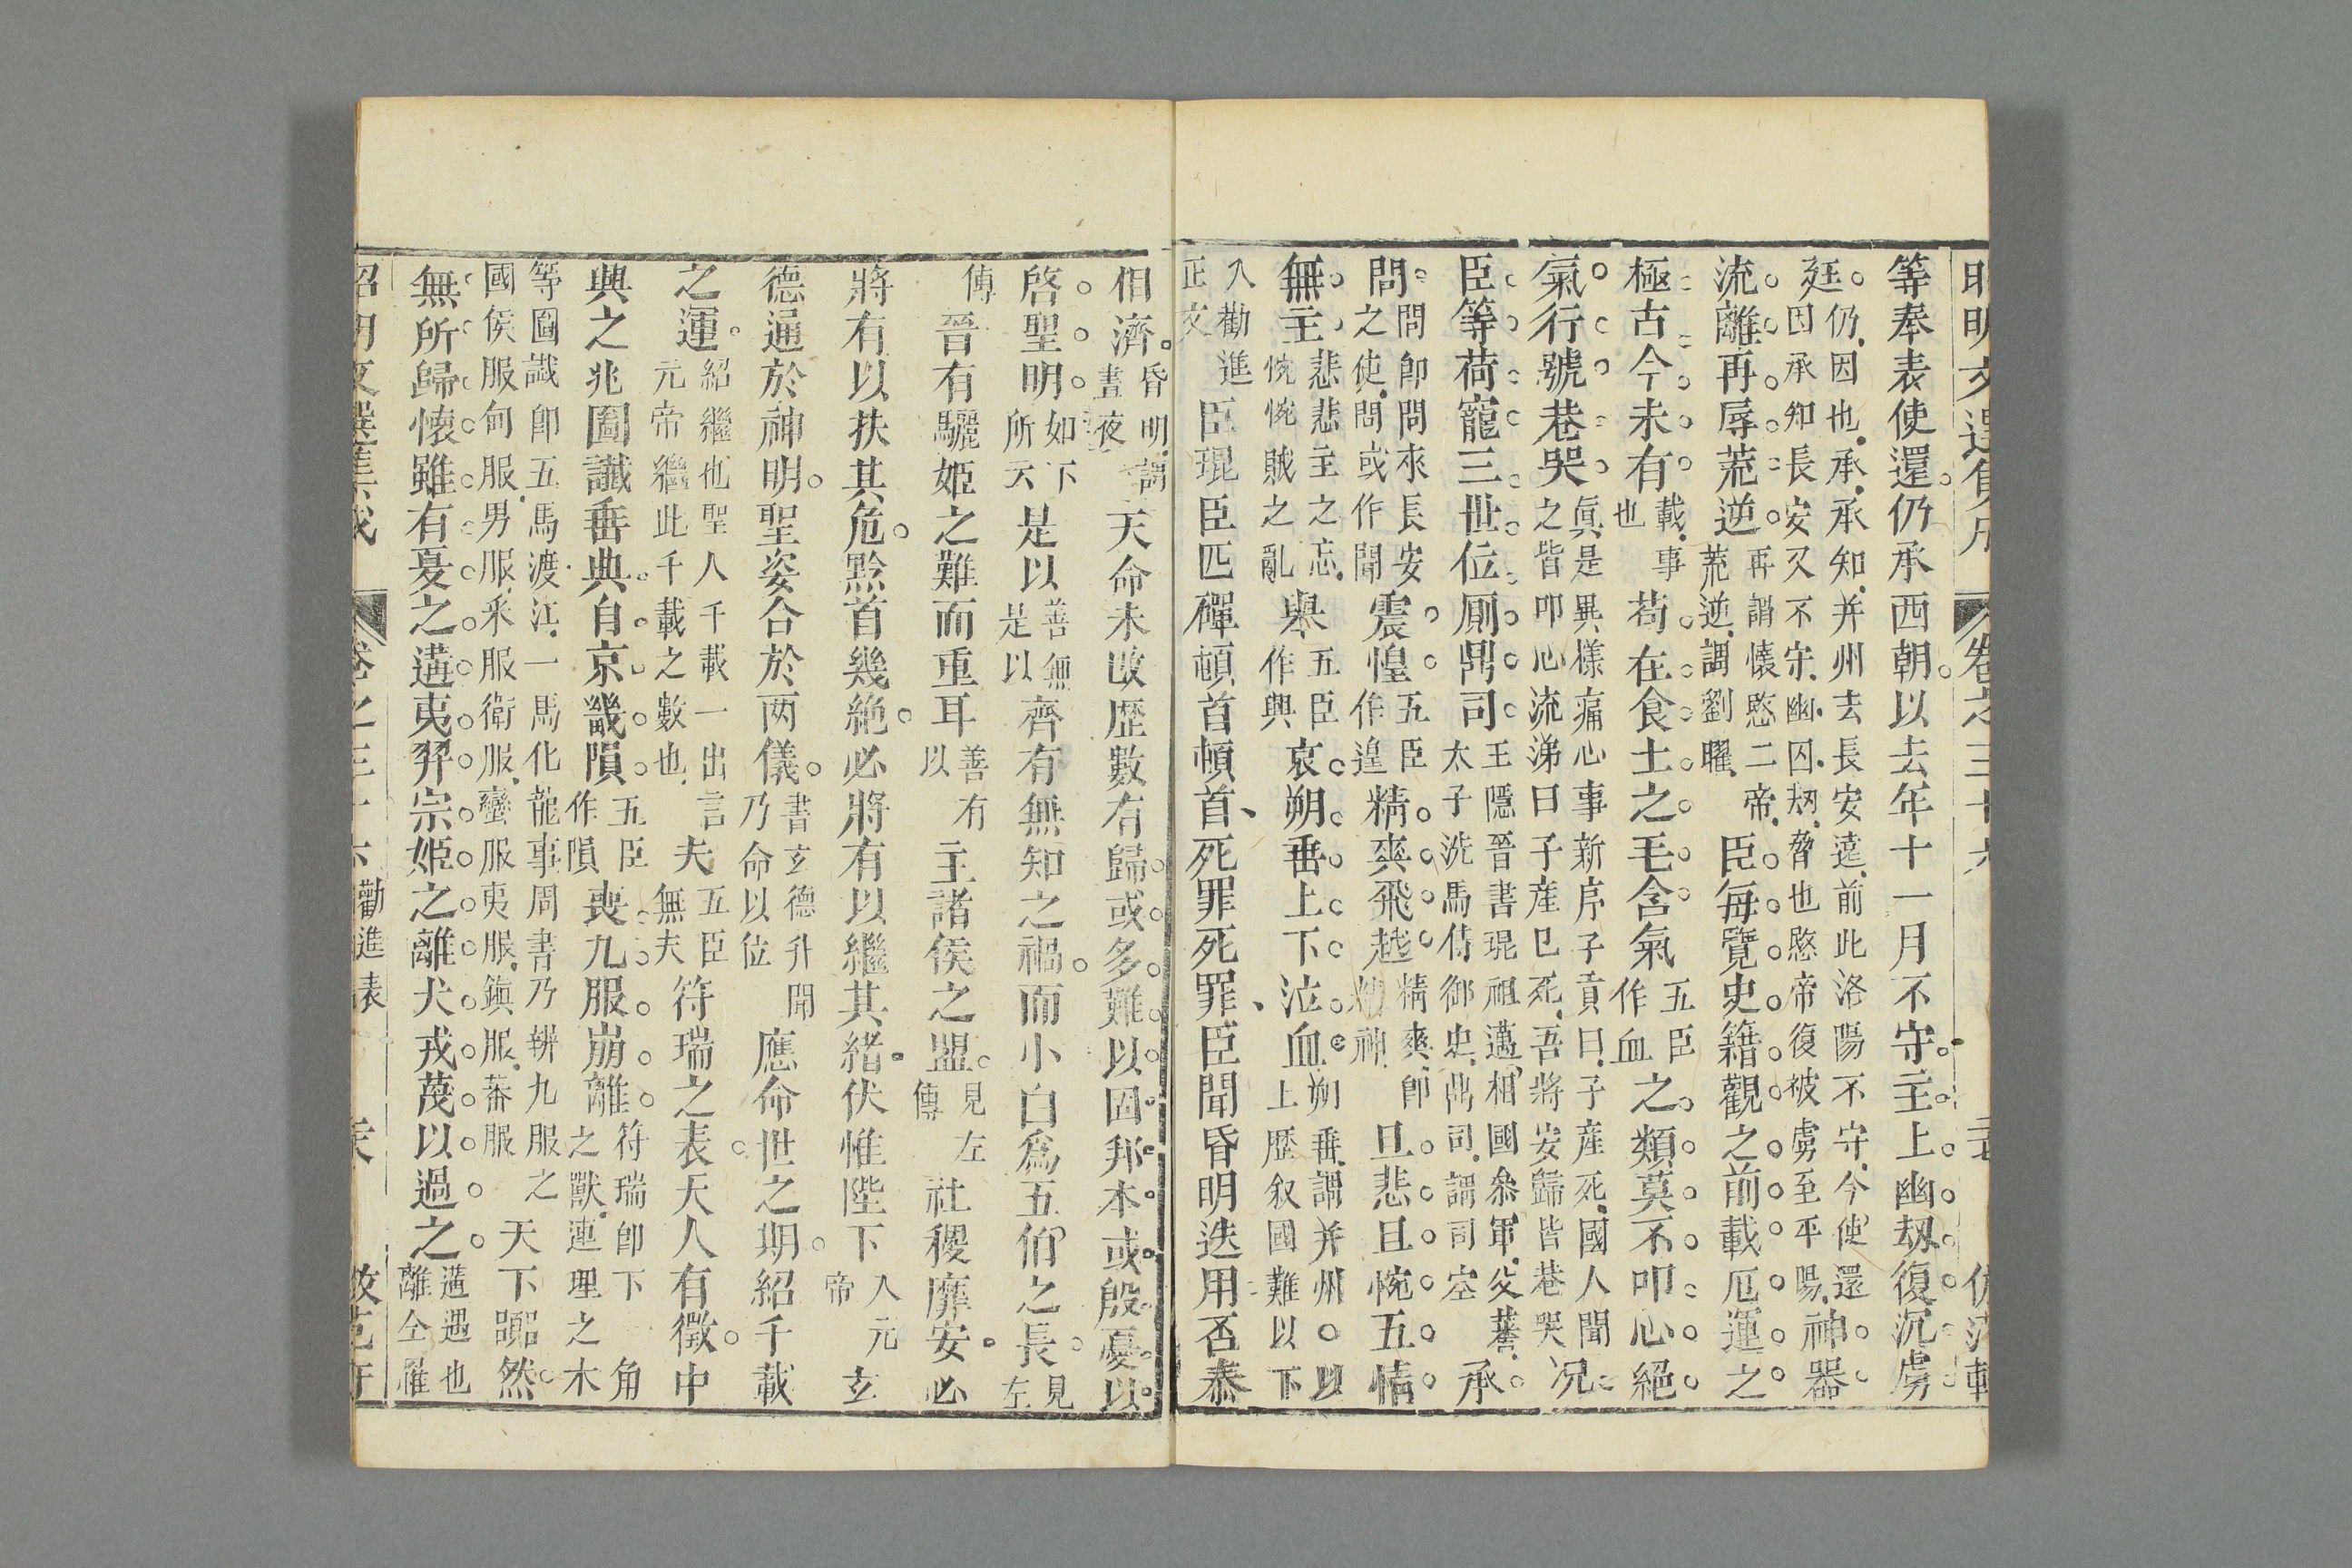 等奉表使還仍承西朝以去年十一月不守主上幽刼復沉虜
廷仍因也承承知并州去長安遠前此洛陽不守今使還因承知長安又不守幽囚刼脅也愍帝復被虜至平陽神器
流離再辱荒逆再謂懷愍二帝荒逆謂劉曜臣每覽史籍觀之前載厄運之
極古今未有載事也苟在食土之毛含氣五臣作血之類莫不叩心絕
氣行號巷哭眞是異樣痛心事新序子貢曰子產死國人聞之皆叩心流涕曰子產已死吾將安歸皆巷哭况
臣等荷寵三世位厠鼎司王隱晉書琨祖邁相國叅軍父蕃太子洗馬侍御史鼎司謂司空承
問問卽問來長安之使問或作聞震惶五臣作遑精爽飛越精爽卽精神且悲且惋五情
無主悲悲主之忘惋惋賊之亂舉五臣作與哀朔垂上下泣血朔垂謂并州以上歷叙國難以下
入勸進正文臣琨臣匹磾頓首頓首死罪死罪臣聞昏明迭用否泰
相濟昏明謂晝夜天命未改歷數有歸或多難以固邦本或殷憂以
啓聖明如下所云是以善無是以齊有無知之禍而小白爲五伯之長見左
傳晉有驪姬之難而重耳善有以主諸侯之盟見左傳社稷靡安必
將有以扶其危黔首幾絶必將有以繼其緒伏惟陛下入元帝玄
德通於神明聖姿合於两儀書玄德升聞乃命以位應命世之期紹千載
之運紹繼也聖人千載一出言元帝繼此千載之數也夫五臣無夫符瑞之表天人有徵中
興之兆圖讖垂典自京畿隕五臣作隕喪九服崩離符瑞卽下一角之獸連理之木
等圖讖卽五馬渡江一馬化龍事周書乃辨九服之國侯服甸服男服采服衛服蠻服夷服鎭服蕃服天下嚻然
無所歸懷雖有夏之遘夷羿宗姬之離犬戎蔑以過之遘遇也離仝罹
昭明文選集成
卷之三十六
勸進表